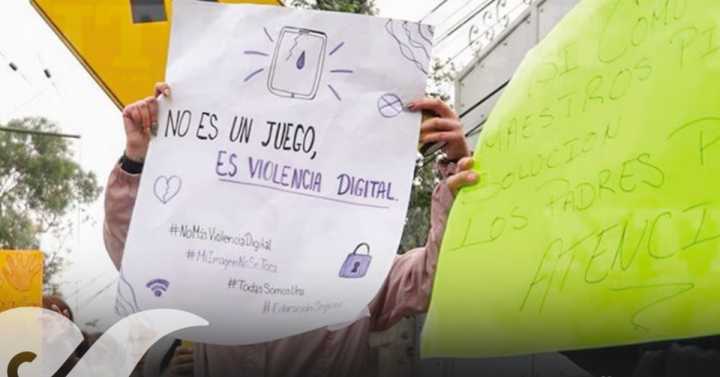 NO ES UN JUEGO,
ES VIOLENCIA DIGITAL.
#NoMásViolenciaDigital
#MiImagenNoSeToca
#TodasSomosUna
ASI COMO
MAESTROS PI
SOLUCION
LOS PADRES P
ATENCI